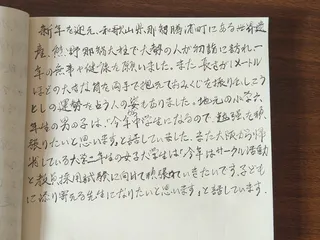 新年を迎え、和歌山県那智勝浦町にある世界遺
産、熊野那智大社で大勢の人が初詣に訪れ、一
年の無事や健康を願いました。また長さが1メートル
ほどの大きな筒を両手で抱えておみくじを振りことし1
年の運勢を占う人の姿もありました。地元の小学六
年生の男の子は、「今年中学生になるので、勉強を頑
張りたいと思います」と話していました。また大阪から帰
省している大学二年生の女子大学生は「今年はサークル活動
と教員採用試験に向けて頑張っていきたいです。子ども
に寄り添える先生になりたいと思います」と話しています。